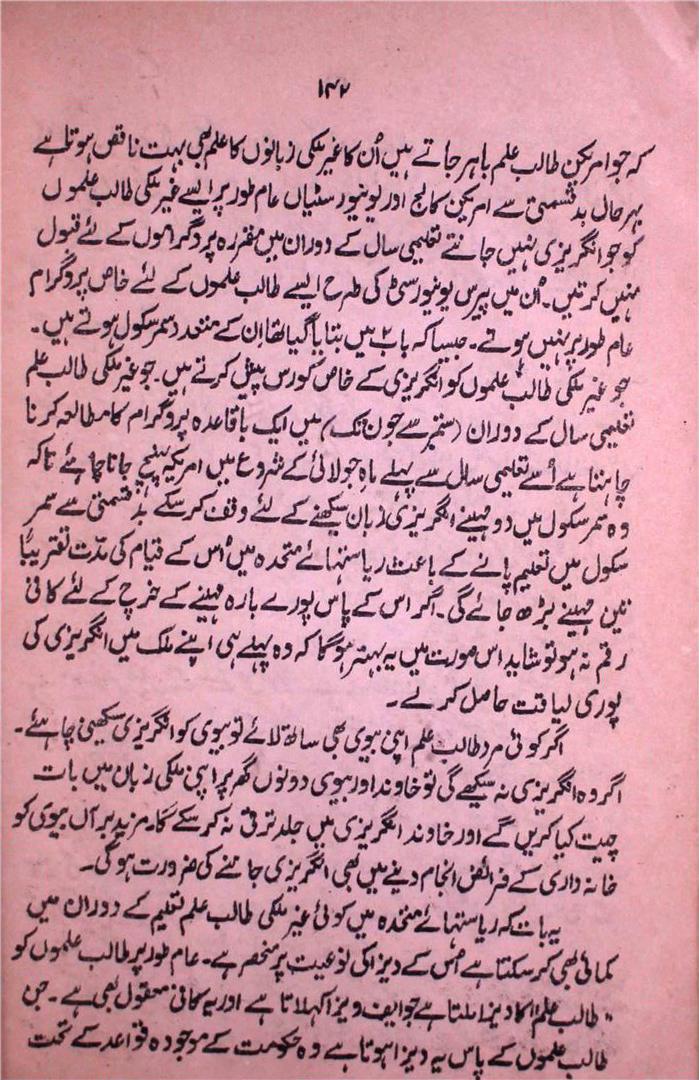 ۱۴۲
کہ جو امریکن طالب علم باہر جاتے ہیں اُن کا غیر ملکی زبانوں کا علم بھی بہت ناقص ہوتا ہے
بہر حال بد قسمتی سے امریکن کالج اور یونیورسٹیاں عام طور پر ایسے غیر ملکی طالب علموں
کو جو انگریزی نہیں جانتے تعلیمی سال کے دوران میں مقررہ پروگراموں کے لئے قبول
نہیں کرتیں۔ اُن میں پیرس یونیورسٹی کی طرح ایسے طالب علموں کے لئے خاص پروگرام
عام طور پر نہیں ہوتے۔ جیسا کہ باب ۲ میں بتایا گیا تھا اِن کے متعدد سمر سکول ہوتے ہیں۔
جو غیر ملکی طالب علموں کو انگریزی کے خاص کورس پیش کرتے ہیں۔ جو غیر ملکی طالب علم
تعلیمی سال کے دوران (ستمبر سے جون تک) میں ایک باقاعدہ پروگرام کا مطالعہ کرنا
چاہتا ہے اُسے تعلیمی سال سے پہلے ماہِ جولائی کے شروع میں امریکہ پہنچ جانا چاہئے تاکہ
وہ سمر سکول میں دو مہینے انگریزی زبان سیکھنے کے لئے وقف کر سکے بد قسمتی سے سمر
سکول میں تعلیم پانے کے باعث ریاستہائے متحدہ میں اُس کے قیام کی مدّت تقریباً
تین مہینے بڑھ جائے گی۔ اگر اس کے پاس پورے بارہ مہینے کے خرچ کے لئے کافی
رقم نہ ہو تو شاید اس صورت میں یہ بہتر ہوگا کہ وہ پہلے ہی اپنے ملک میں انگریزی کی
پوری لیاقت حاصل کر لے۔
اگر کوئی مرد طالب علم اپنی بیوی بھی ساتھ لائے تو بیوی کو انگریزی سیکھنی چاہئے۔
اگر وہ انگریزی نہ سیکھے گی تو خاوند اور بیوی دونوں گھر پر اپنی ملکی زبان میں بات
چیت کیا کریں گے اور خاوند انگریزی میں جلد ترقی نہ کر سکے گا۔ مزید برآں بیوی کو
خانہ داری کے فرائض انجام دینے میں بھی انگریزی جاننے کی ضرورت ہوگی۔
یہ بات کہ ریاستہائے متحدہ میں کوئی غیر ملکی طالب علم تعلیم کے دوران میں
کمائی بھی کر سکتا ہے اُس کے ویزا کی نوعیت پر منحصر ہے۔ عام طور پر طالب علموں کو
"طالب علم کا ویزا ملتا ہے جو ایف ویزا کہلاتا ہے اور یہ کافی معقول بھی ہے۔ جن
طالب علموں کے پاس یہ ویزا ہوتا ہے وہ حکومت کے موجودہ قواعد کے تحت